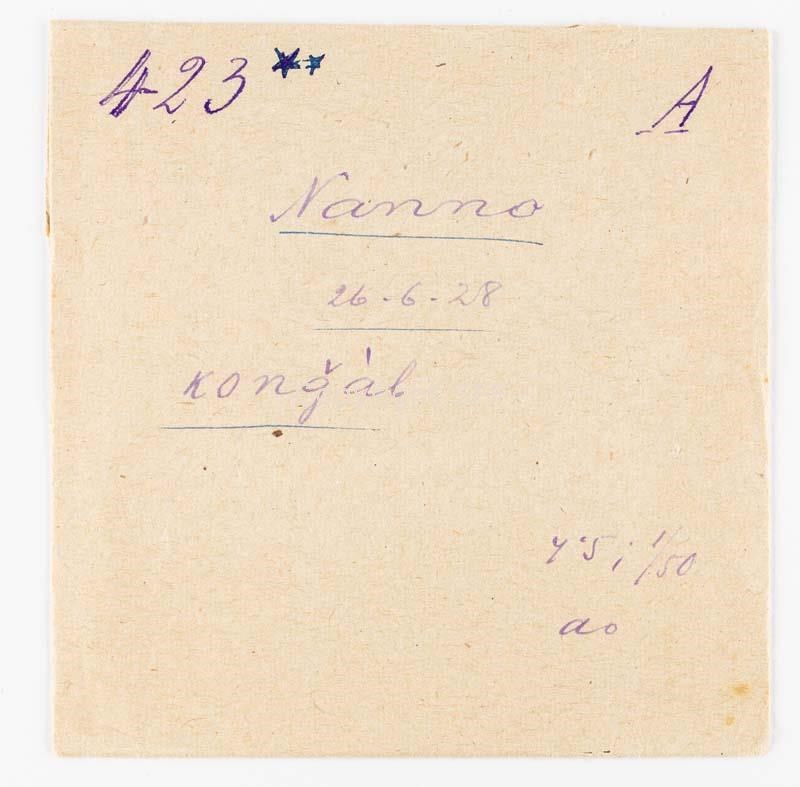 423 **
A
Nanno
26-6-28
konǧàl
4.5; 1/50
ao